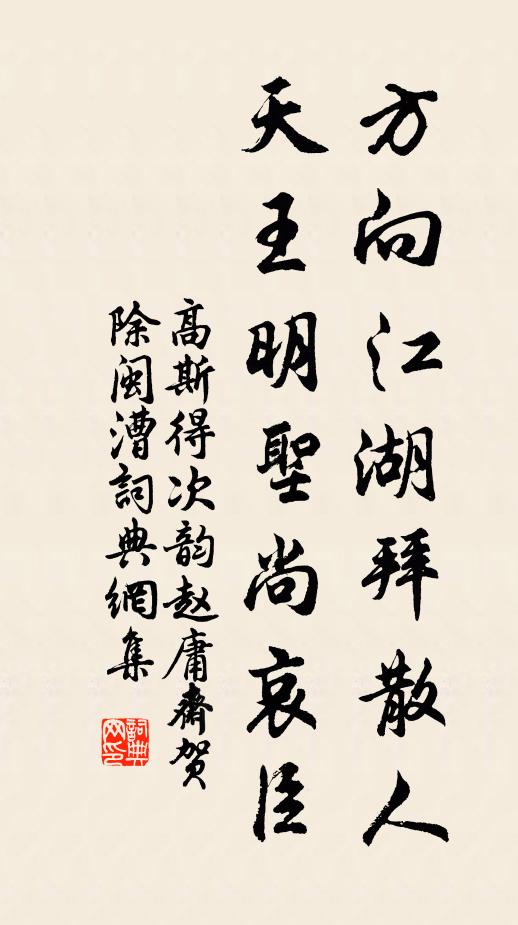 方向江湖拜散人
天王明聖尚哀臣
高斯得次韵赵庸齋贺
除闽漕詞典網集
詞典网印